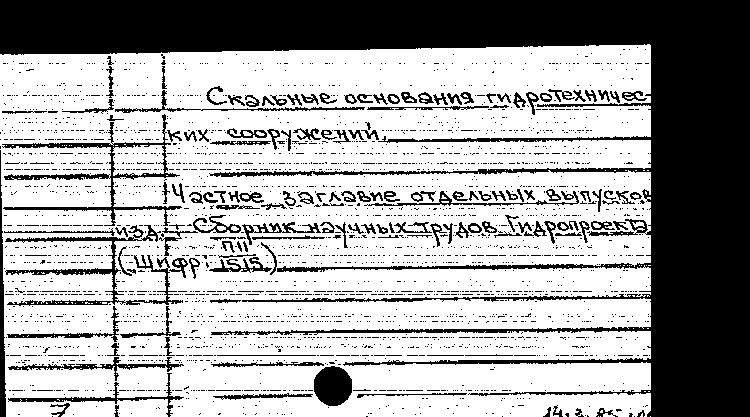 Скальные основания гидротехничес-
ких сооружений.
Частное заглавие отдельных выпусков
изд.: Сборник научных трудов Гидропроекта
(Шифр: П11/1515)
7